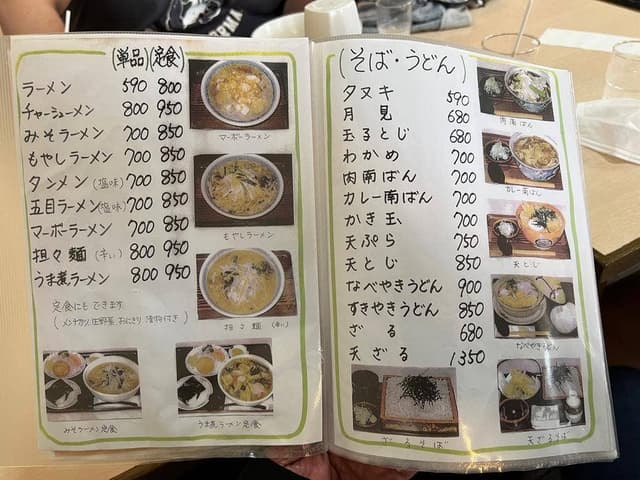 (単品)(定食)
ラーメン 590 800
チャーシューメン 800 950
みそラーメン 700 850
もやしラーメン 700 850
タンメン(塩味) 700 850
五目ラーメン(塩味) 700 850
マーボーラーメン 700 850
担々麺(辛い) 800 950
うま煮ラーメン 800 950
定食にもできます
マーボーラーメン
もやしラーメン
担々麺(辛い)
みそラーメン定食
うま煮ラーメン定食
(そば・うどん)
タヌキ 590
月見 680
玉るとじ 680
わかめ 700
肉南ばん 700
カレー南ばん 700
かき玉 700
天ぷら 750
天とじ 850
なべやきうどん 900
すきやきうどん 850
ざる 680
天ざる 1350
肉南ばん
カレー南ばん
天とじ
なべやきうどん
ざるそば
天ざるそば